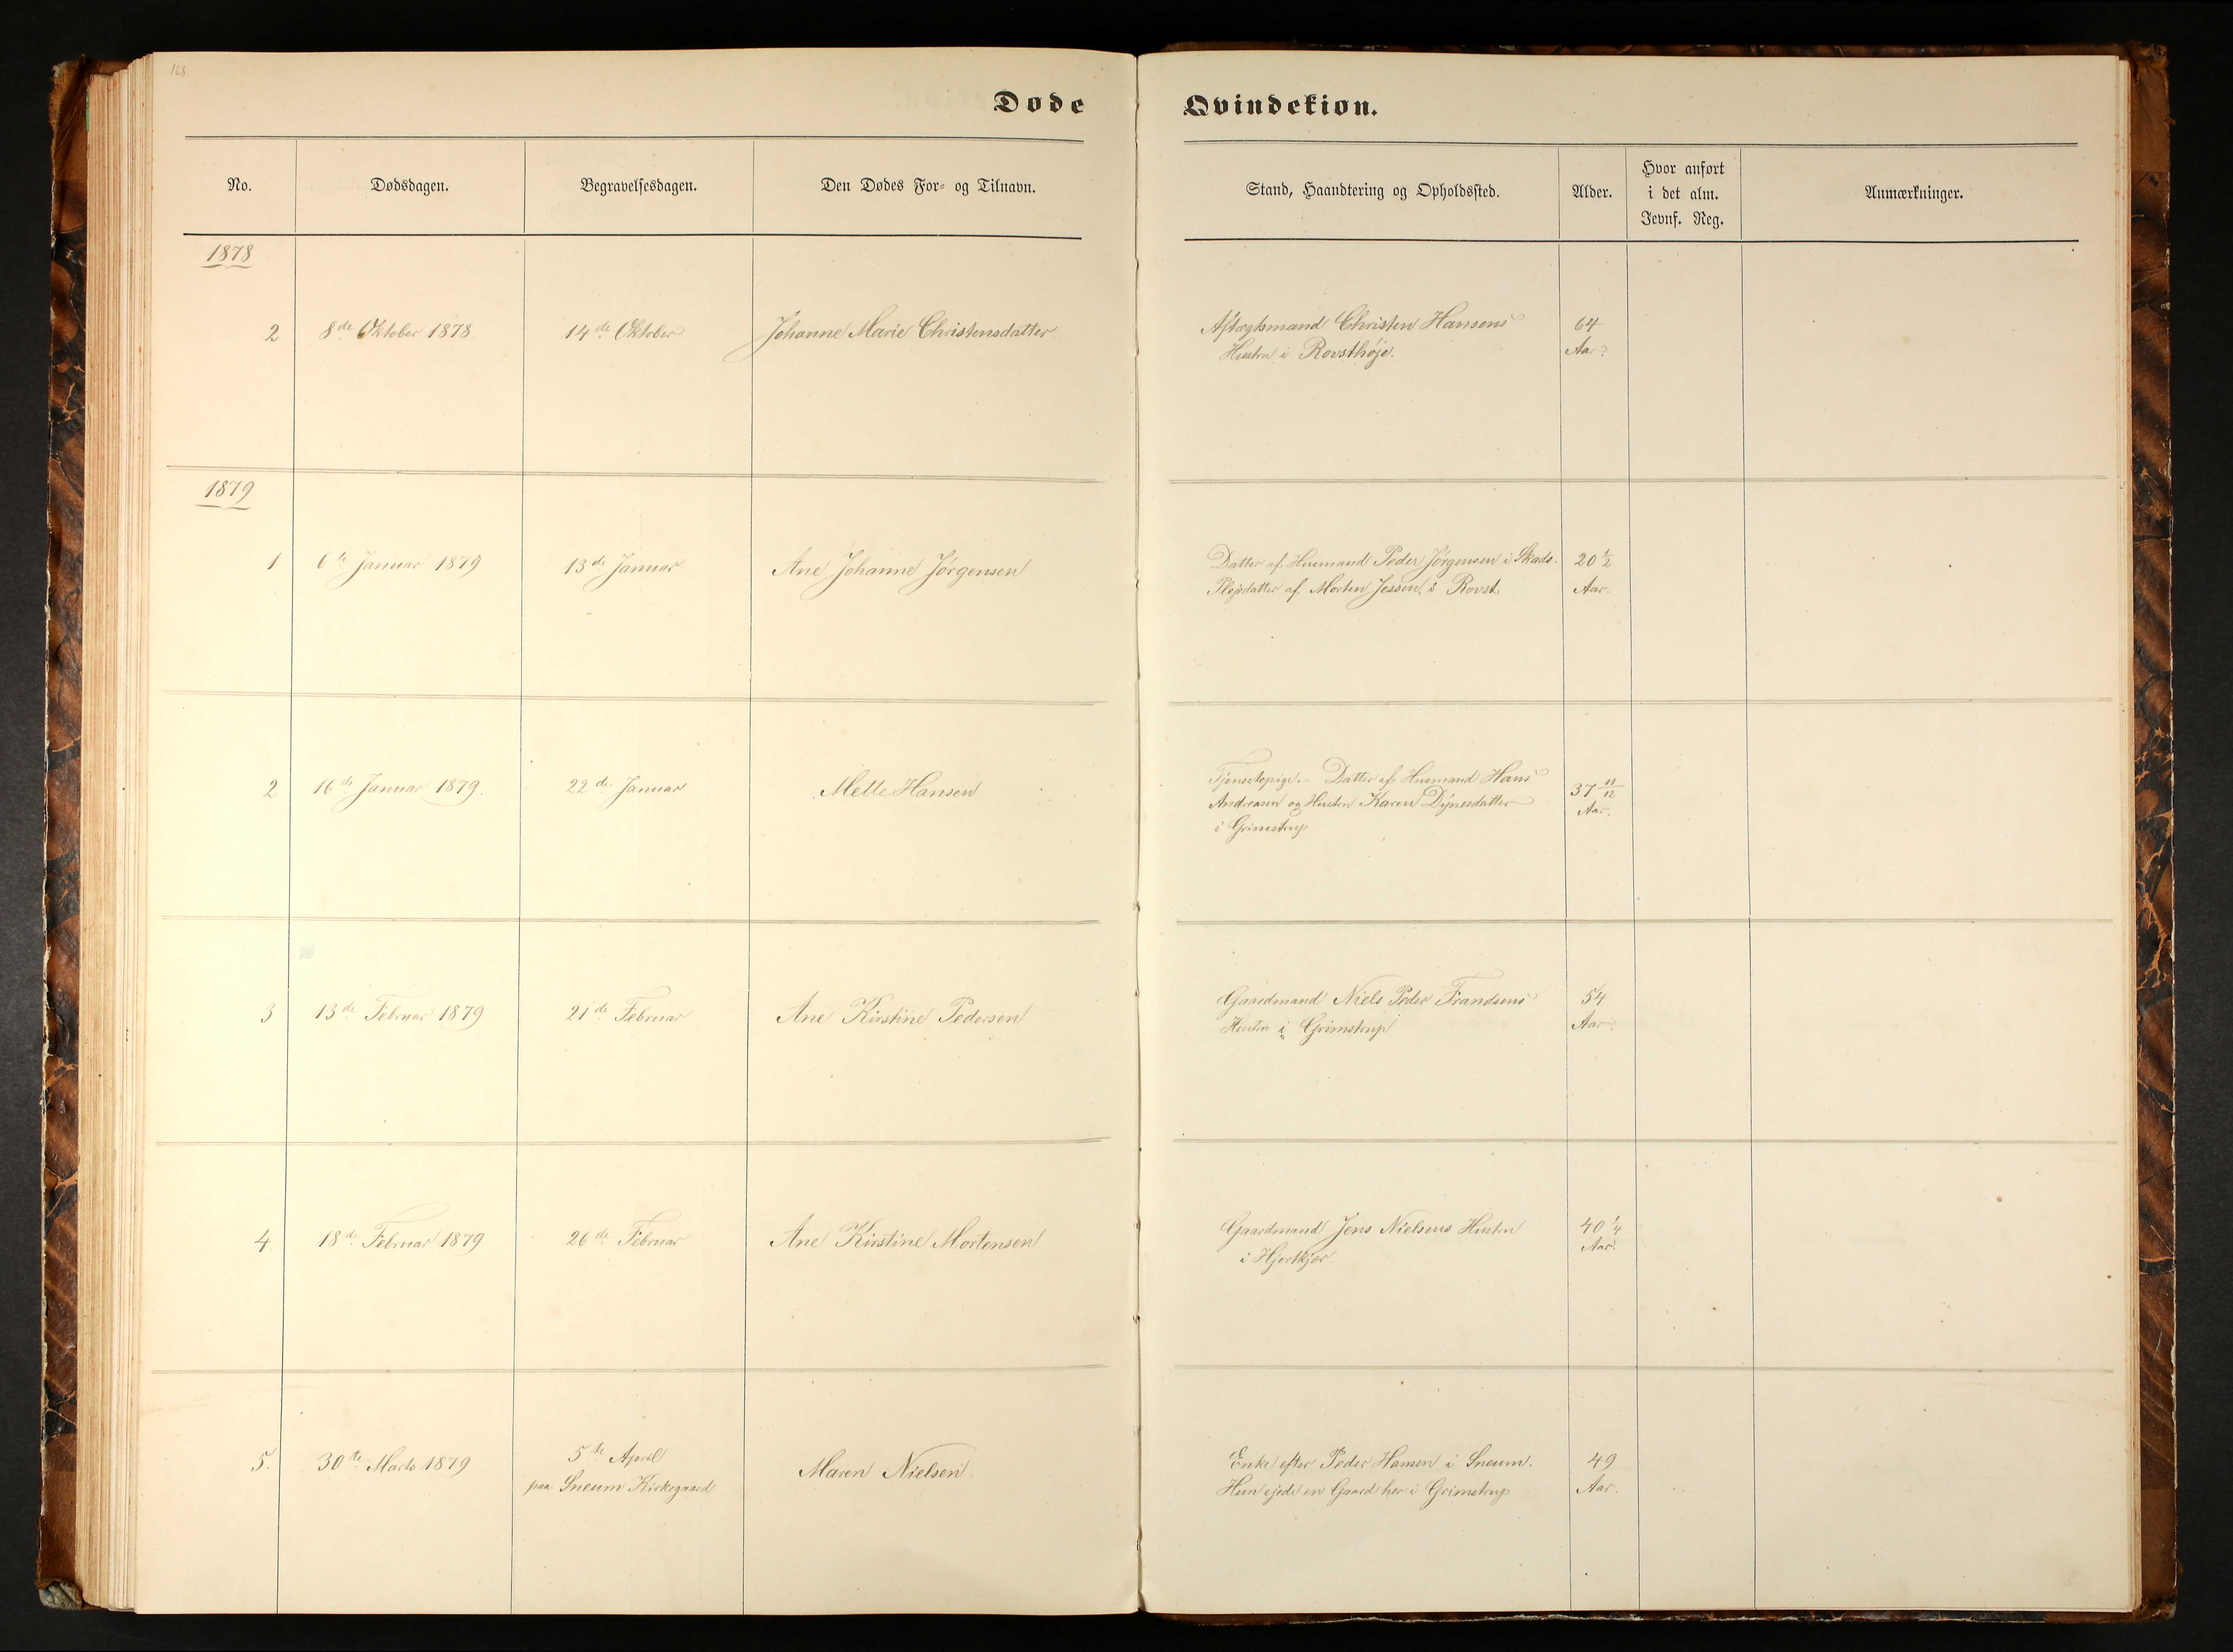 168
Døde Qvindekiøn.
No. Dødsdagen. Begravelsesdagen. Den Dødes For- og Tilnavn. Stand, Haandtering og Opholdssted. Alder. Hvor anført i det alm. Jevnf. Reg. Anmærkninger.
1878
2 8de Oktober 1878 14de Oktober Johanne Marie Christensdatter Aftægtsmand Christen Hansens 64
Hustru i Rovsthøje. Aar.
1879
1 6te Januar 1879 13de Januar Ane Johanne Jørgensen Datter af Husmand Peder Jørgensen i Skads. 20 1/2
Plejedatter af Morten Jessen, i Rovst Aar.
2 16de Januar 1879. 22de Januar Mette Hansen Tjenestepige. - Datter af Husmand Hans 37 11/12
Andreasen og Hustru Karen Dynesdatter Aar.
i Grimstrup
3 13de Februar 1879 21de Februar Ane Kirstine Pedersen Gaardmand Niels Peder Frandsens 54
Hustru i Grimstrup Aar.
4. 18de Februar 1879 26de Februar Ane Kirstine Mortensen Gaardmand Jens Nielsens Hustru 40 1/4
i Hjortkjær. Aar.
5. 30te Marts 1879 5te April Maren Nielsen. Enke efter Peder Hansen i Sneum. 49
paa Sneum Kirkegaard Hun ejede en Gaard her i Grimstrup Aar.